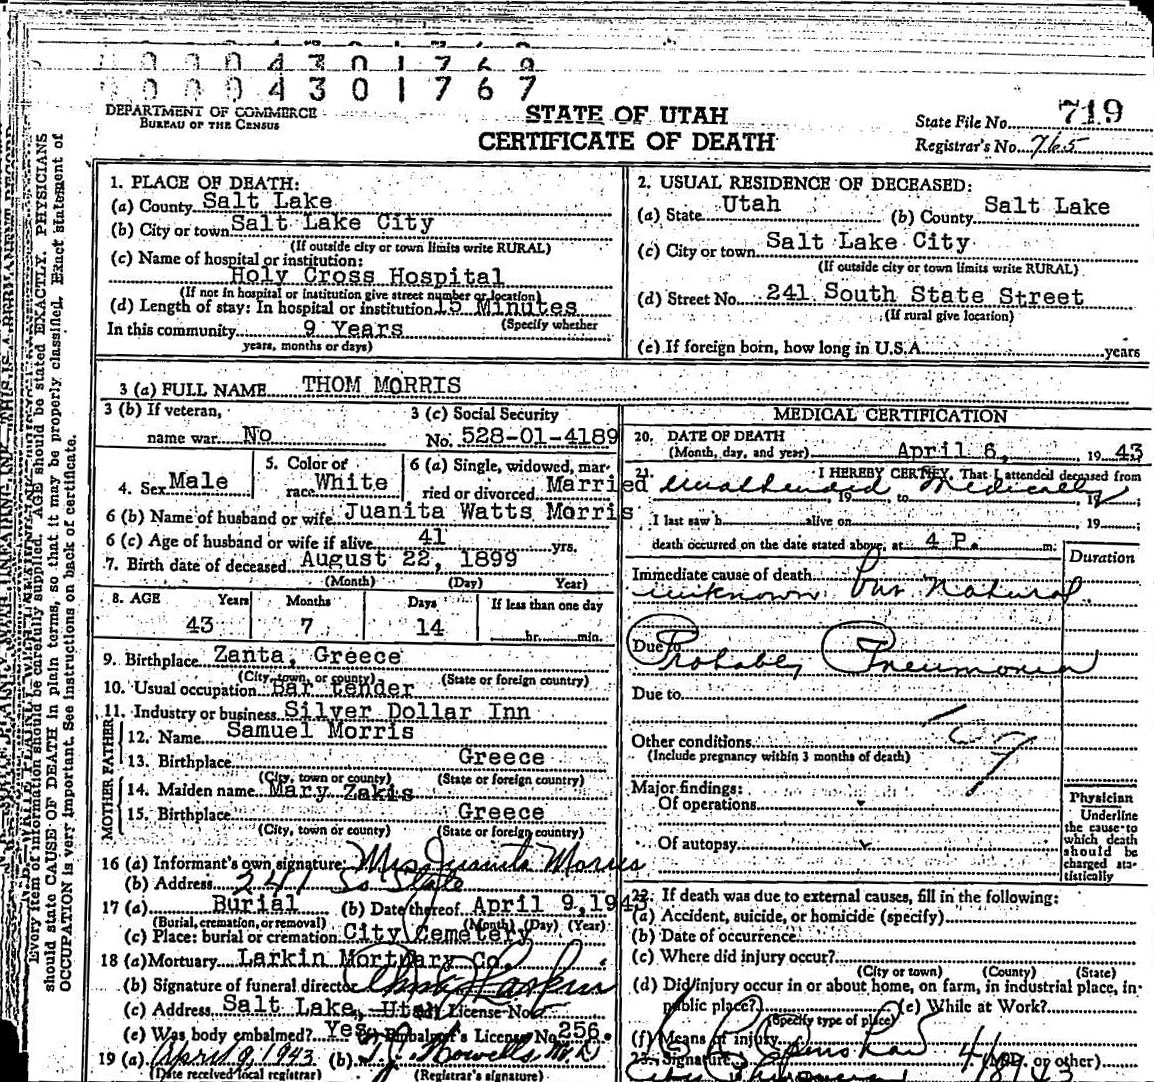 0 0 0 4 3 0 1 7 6 9
0 0 0 4 3 0 1 7 6 7
DEPARTMENT OF COMMERCE
BUREAU OF THE CENSUS
STATE OF UTAH
CERTIFICATE OF DEATH
State File No. 719
Registrar's No. 765
Every item of information should be carefully supplied. AGE should be stated EXACTLY. PHYSICIANS
should state CAUSE OF DEATH in plain terms, so that it may be properly classified. Exact statement of
OCCUPATION is very important. See instructions on back of certificate.
1. PLACE OF DEATH:
(a) County Salt Lake
(b) City or town Salt Lake City
(If outside city or town limits write RURAL)
(c) Name of hospital or institution:
Holy Cross Hospital
(If not in hospital or institution give street number or location)
(d) Length of stay: In hospital or institution 15 Minutes
(Specify whether
In this community 9 Years
years, months or days)
2. USUAL RESIDENCE OF DECEASED:
(a) State Utah (b) County Salt Lake
(c) City or town Salt Lake City
(If outside city or town limits write RURAL)
(d) Street No. 241 South State Street
(If rural give location)
(e) If foreign born, how long in U.S.A. years
3 (a) FULL NAME THOM MORRIS
3 (b) If veteran,
name war No
3 (c) Social Security
No. 528-01-4189
4. Sex Male
5. Color of
race White
6 (a) Single, widowed, mar-
ried or divorced Married
6 (b) Name of husband or wife Juanita Watts Morris
6 (c) Age of husband or wife if alive 41 yrs.
7. Birth date of deceased August 22, 1899
(Month) (Day) Year)
8. AGE Years Months Days If less than one day
43 7 14 hr. min.
9. Birthplace Zanta, Greece
(City, town, or county) (State or foreign country)
10. Usual occupation Bar tender
11. Industry or business Silver Dollar Inn
FATHER
12. Name Samuel Morris
13. Birthplace Greece
(City, town or county) (State or foreign country)
MOTHER
14. Maiden name Mary Zakis
15. Birthplace Greece
(City, town or county) (State or foreign country)
16 (a) Informant's own signature: Mrs Juanita Morris
(b) Address 241 So State
17 (a) Burial (b) Date thereof April 9, 1943
(Burial, cremation, or removal) (Month) (Day) (Year)
(c) Place: burial or cremation City Cemetery
18 (a) Mortuary Larkin Mortuary Co.
(b) Signature of funeral director Larkin
(c) Address Salt Lake, Utah License No.
(e) Was body embalmed? Yes Embalmer's License No. 256.
19 (a) April 9, 1943 (b) T.J. Howells, M.D.
(Date received local registrar) (Registrar's signature)
MEDICAL CERTIFICATION
20. DATE OF DEATH
(Month, day, and year) April 6, 1943
21. I HEREBY CERTIFY, That I attended deceased from
Unattended Medically 19 to 19 ;
I last saw h alive on , 19 ;
death occurred on the date stated above, at 4 P. m.
Duration
Immediate cause of death
unknown but Natural
Due to
Probably Pneumonia
Due to
109
Other conditions
(Include pregnancy within 3 months of death)
Major findings:
Of operations
Of autopsy
Physician
Underline
the cause to
which death
should be
charged sta-
tistically
22. If death was due to external causes, fill in the following:
(a) Accident, suicide, or homicide (specify)
(b) Date of occurrence
(c) Where did injury occur?
(City or town) (County) (State)
(d) Did injury occur in or about home, on farm, in industrial place, in
public place? (e) While at Work?
(Specify type of place)
(f) Means of injury
23. Signature (M.D. or other)